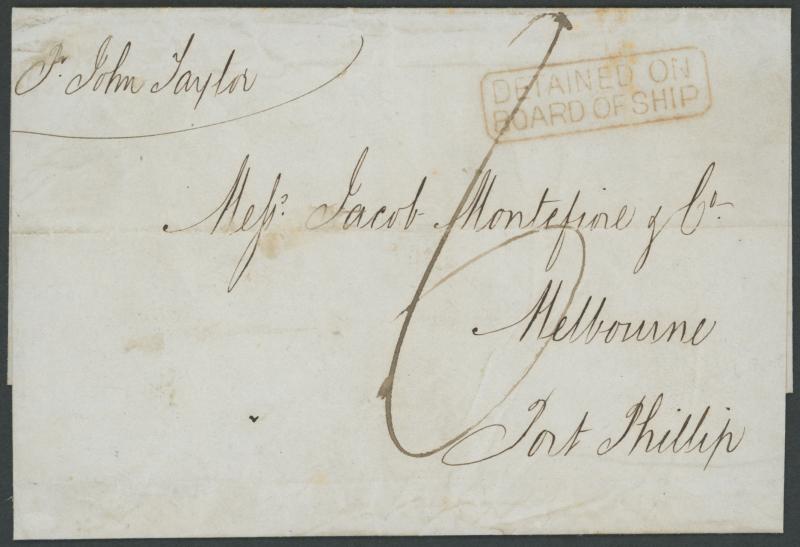 Pr. John Taylor
DETAINED ON
BOARD OF SHIP
6
Messrs. Jacob Montefiore & Co.
Melbourne
Port Phillip